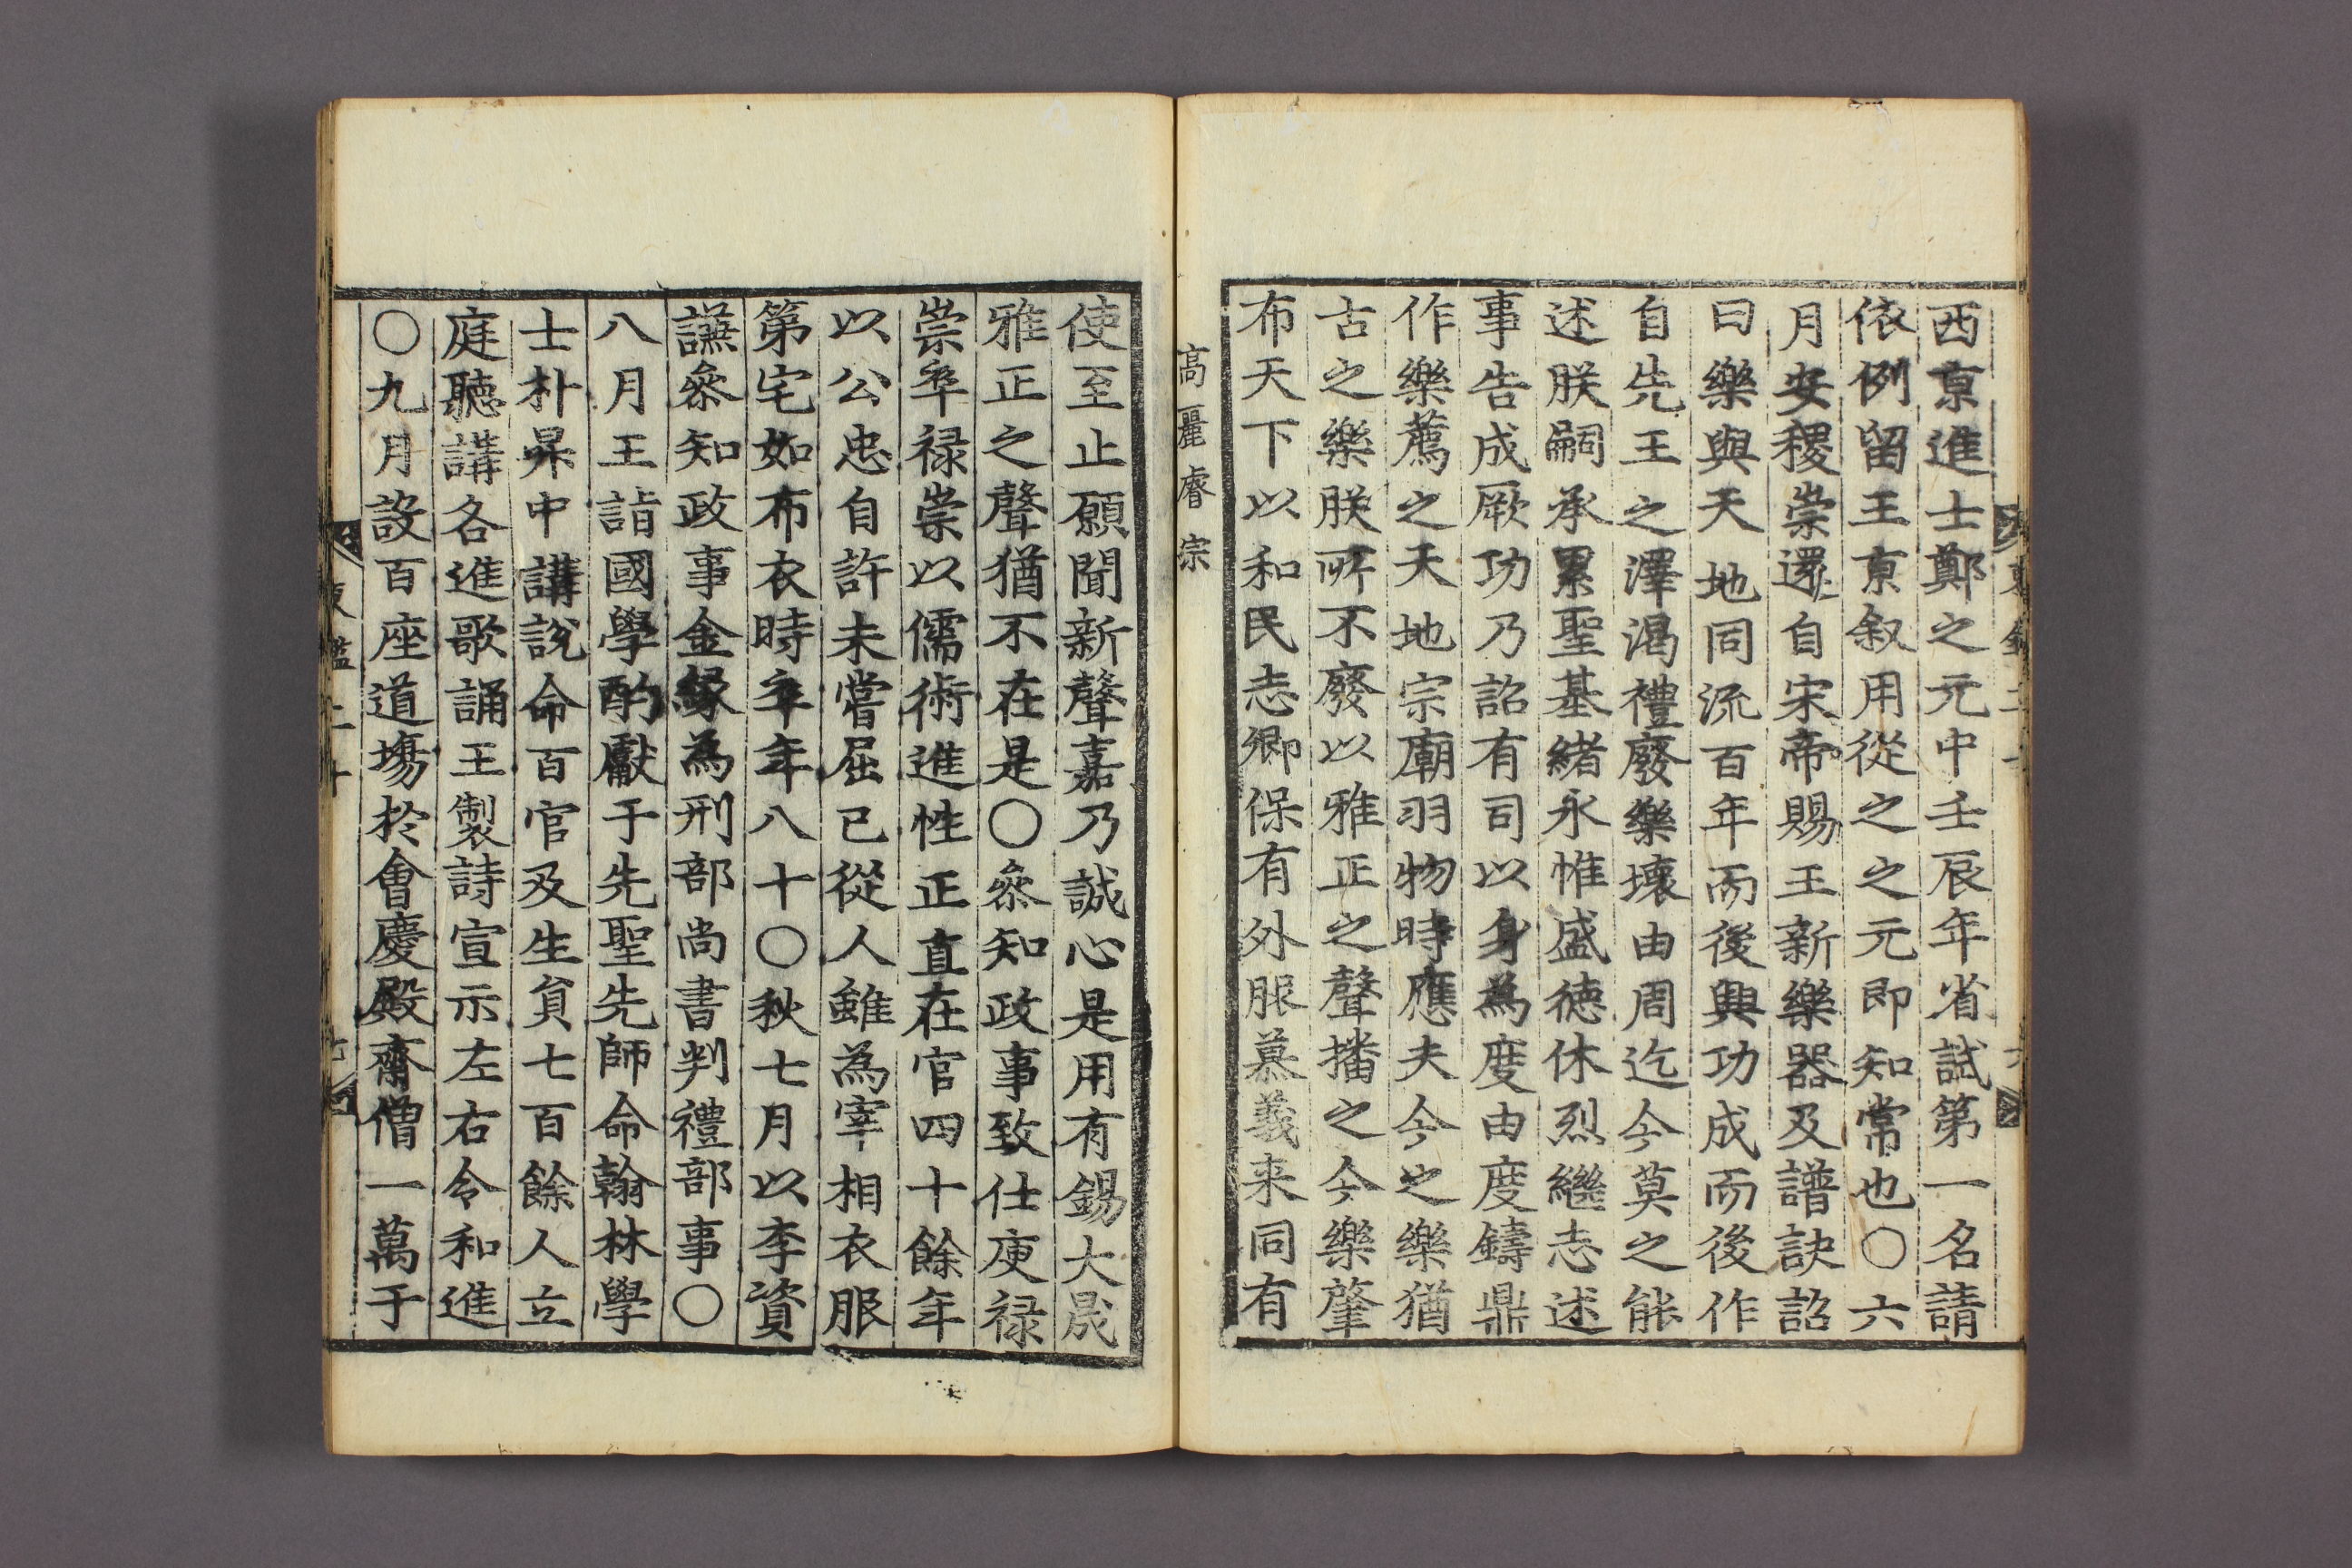 西京進士鄭之元中壬辰年省試第一名請
依例留王京叙用從之之元即知常也〇六
月安稷崇還自宋帝賜王新樂器及譜訣詔
曰樂與天地同流百年而後興功成而後作
自先王之澤渴禮廢樂壞由周迄今莫之能
述朕嗣承累聖基緒永惟盛德休烈繼志述
事告成厥功乃詔有司以身為度由度鑄鼎
作樂薦之天地宗廟羽物時應夫今之樂猶
古之樂朕所不廢以雅正之聲播之今樂肇
布天下以和民志卿保有外服慕義来同有
高麗睿宗
使至止願聞新聲嘉乃誠心是用有錫大晟
雅正之聲猶不在是〇叅知政事致仕庾禄
崇卒禄崇以儒術進性正直在官四十餘年
以公忠自許未嘗屈已從人雖為宰相衣服
第宅如布衣時卒年八十〇秋七月以李資
諴叅知政事金緣為刑部尚書判禮部事〇
八月王詣國學酌獻于先聖先師命翰林學
士朴昇中講說命百官及生負七百餘人立
庭聽講各進歌誦王製詩宣示左右令和進
〇九月設百座道塲於會慶殿齋僧一萬于